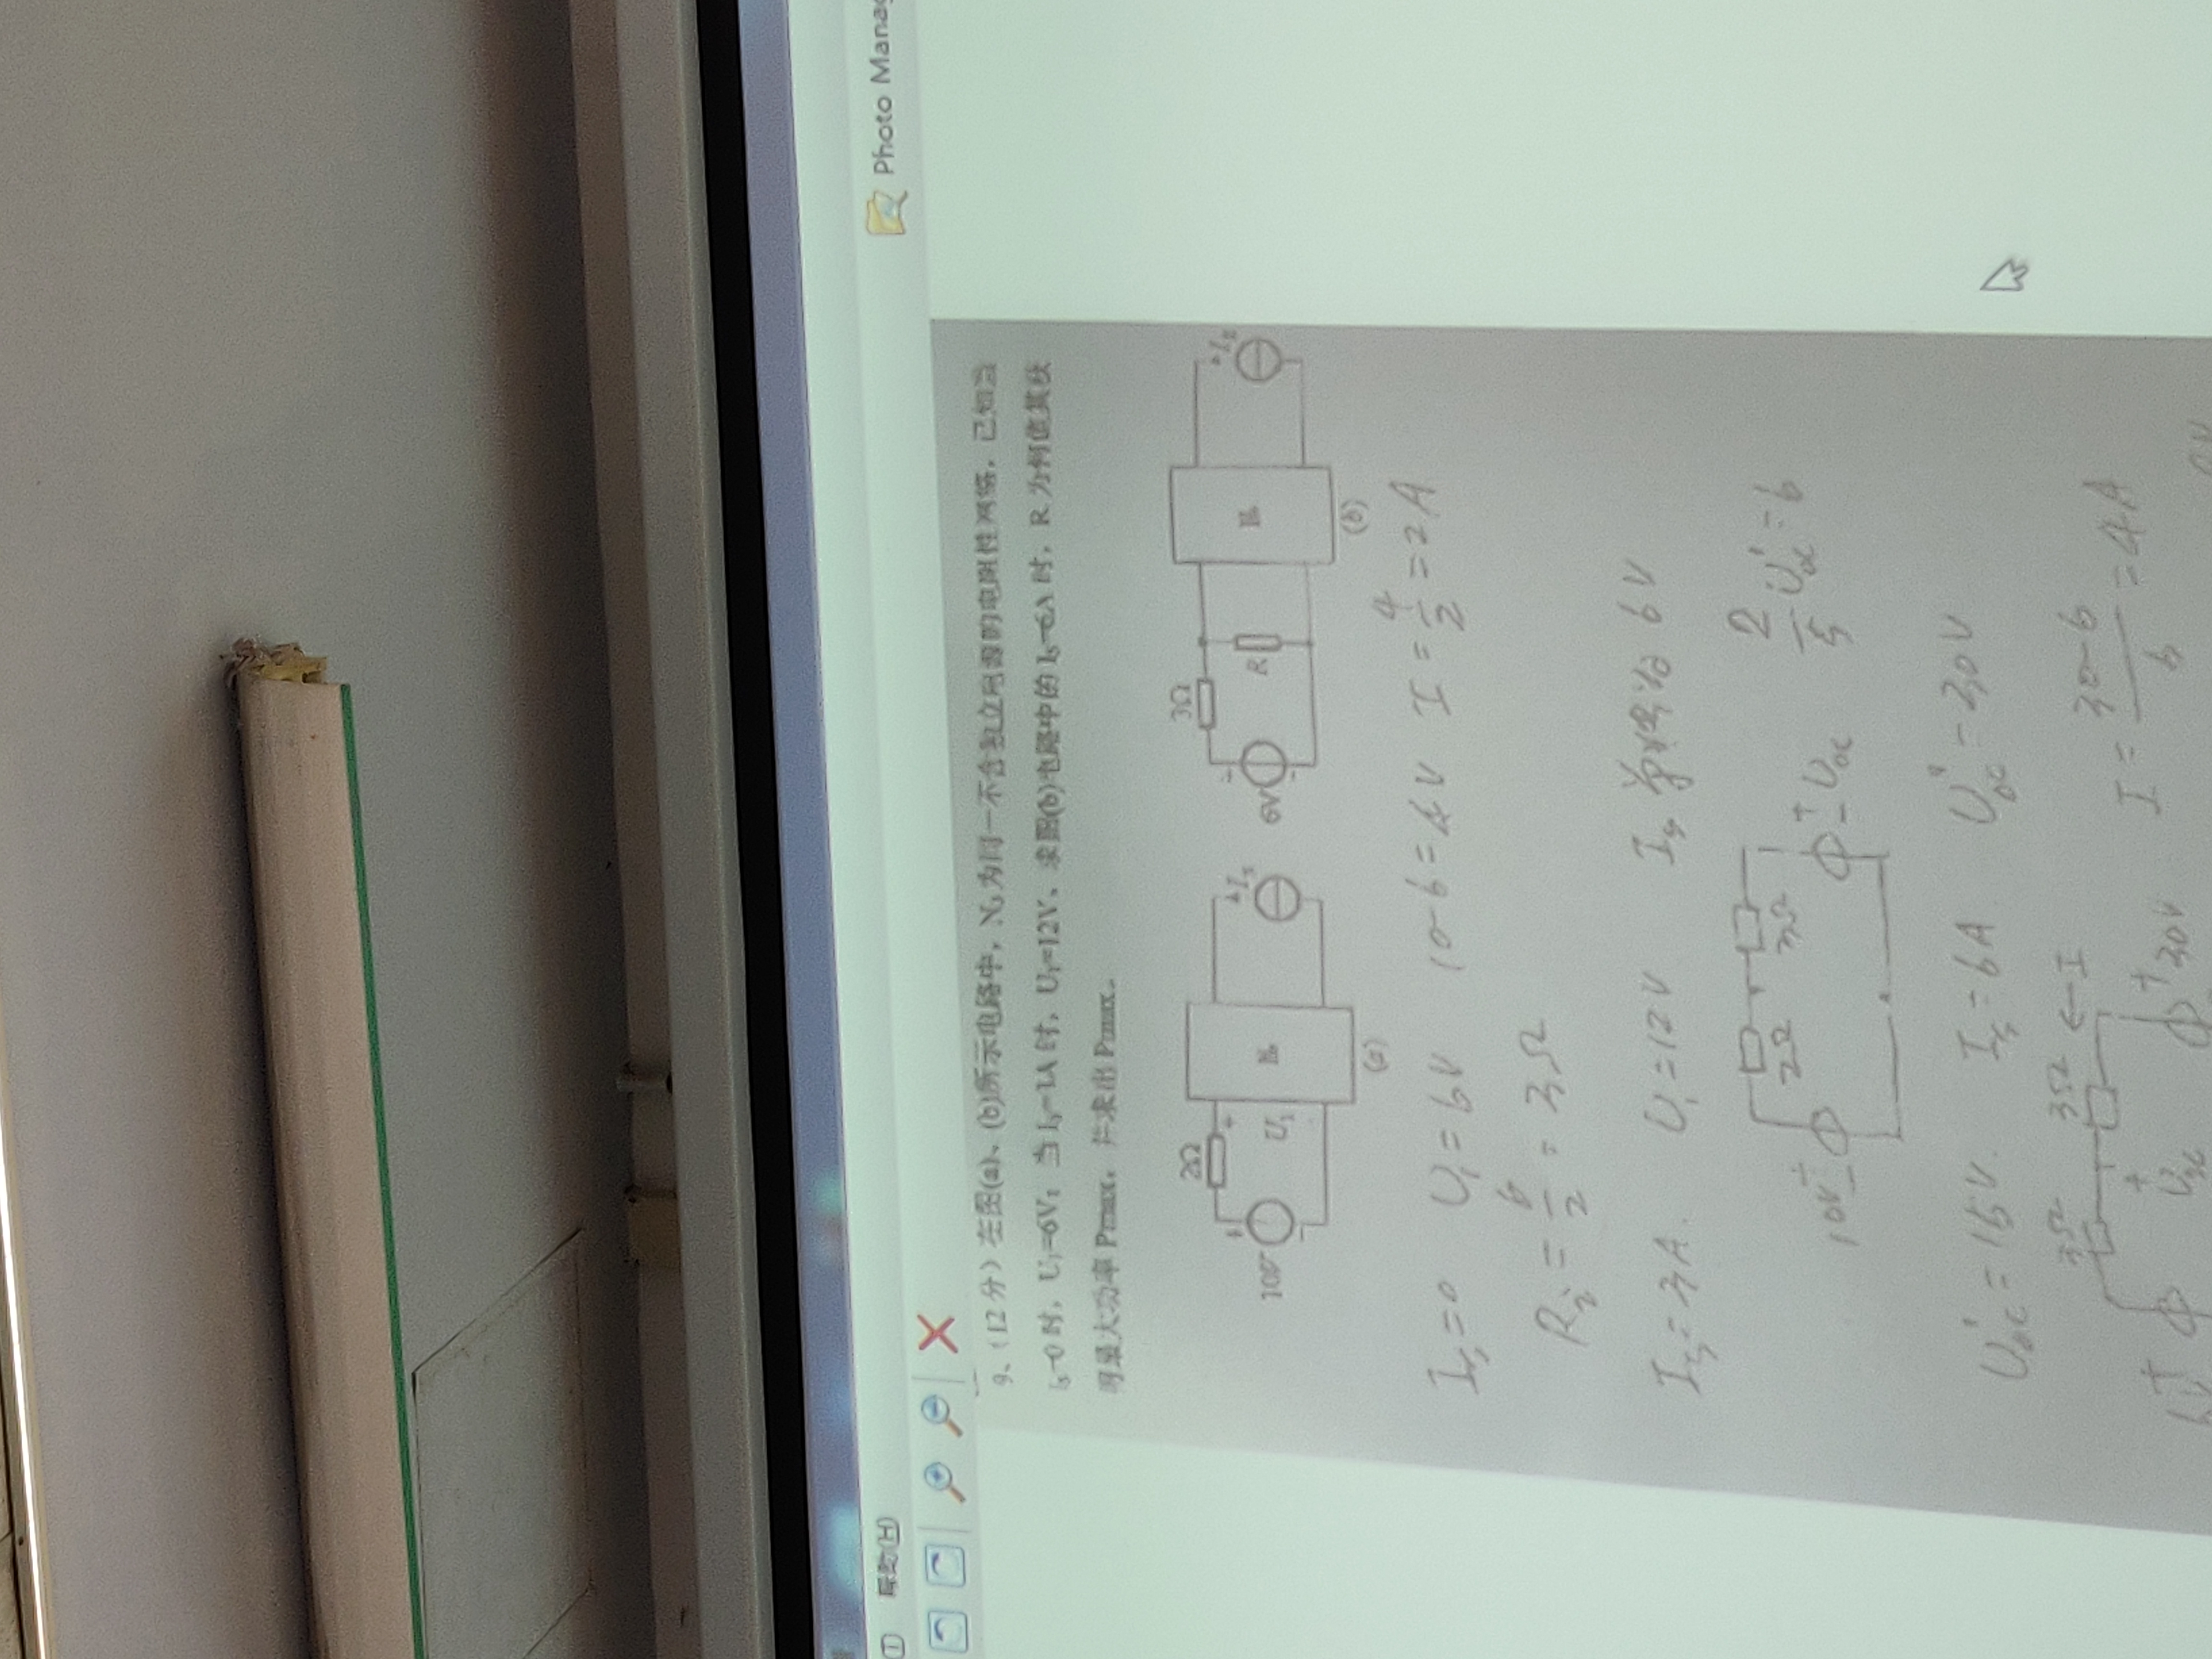 帮助(H)
Photo Manag
9、(12分)在图(a)、(b)所示电路中，N₀为同一不含独立电源的电阻性网络，已知当
Is=0时，U₁=6V；当Is=3A时，U₁=12V、求图(b)电路中的Is=6A时，R为何值其获
得最大功率Pmax，并求出Pmax。
2Ω
10V
+
-
+
U₁
N₀
Is
(a)
3Ω
6V
+
-
R
N₀
Is
(b)
Is=0 U₁=6V 10-6=4V I=4/2=2A
Ri=6/2=3Ω
Is=3A. U₁=12V Is单独为6V
2Ω 3Ω
10V + - + - Uoc
2/5 U'oc=6
U'oc=15V. Is=6A U'oc=30V
3Ω 3Ω ←I
I=30-6/6=4A
6V + + Uoc + 30V